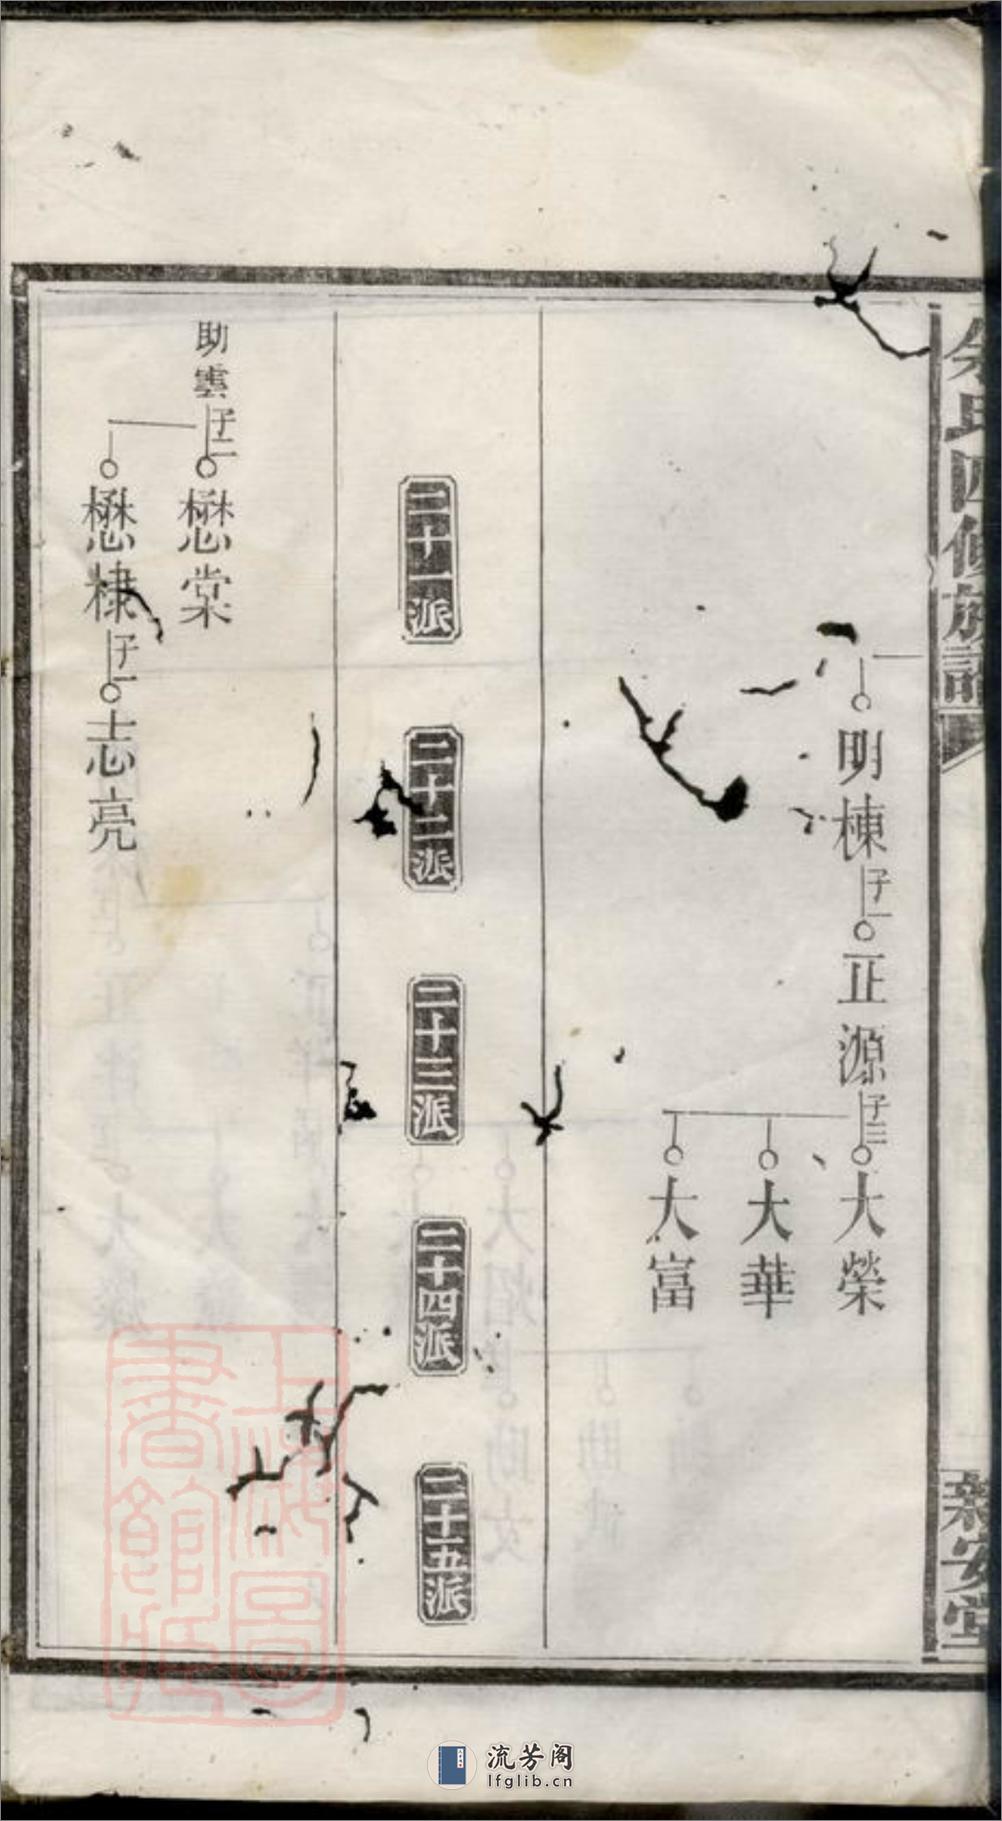 余氏四修族譜
新安堂
明棟子一
正源子三
大榮
大華
大富
二十一派
二十二派
二十三派
二十四派
二十五派
助雲子二
懋棠
懋棣子一
志亮
上海圖書館藏
流芳阁
lfglib.cn